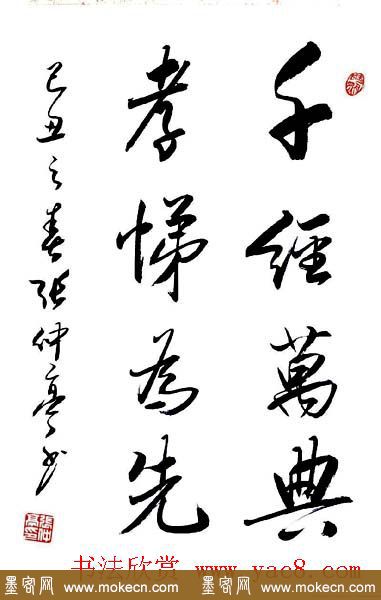 千經萬典
孝悌為先
己丑之春張仲亭書
張仲亭印
书法欣赏 www.yac8.com
墨客网 www.mokecn.com
墨客网 www.mokecn.com